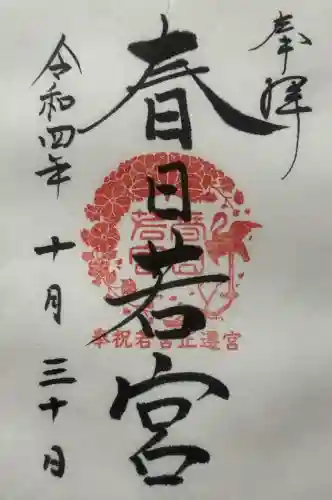 奉拝
春日若宮
春日
若宮
奉祝若宮正遷宮
令和四年 十月 三十日